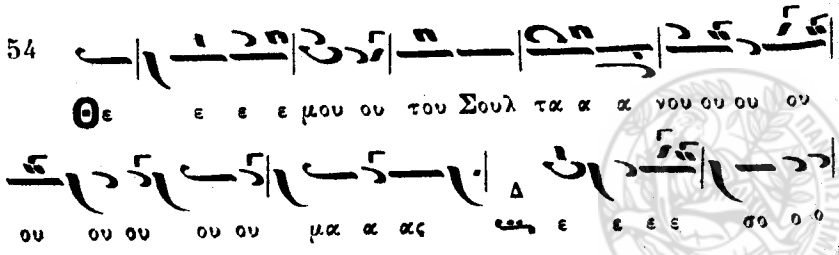 54
Θε ε ε ε μου ου του Σουλ τα α α νου ου ου ου
ου ου ου ου ου μα α ας Δ ε ε ε ε σο ο ο